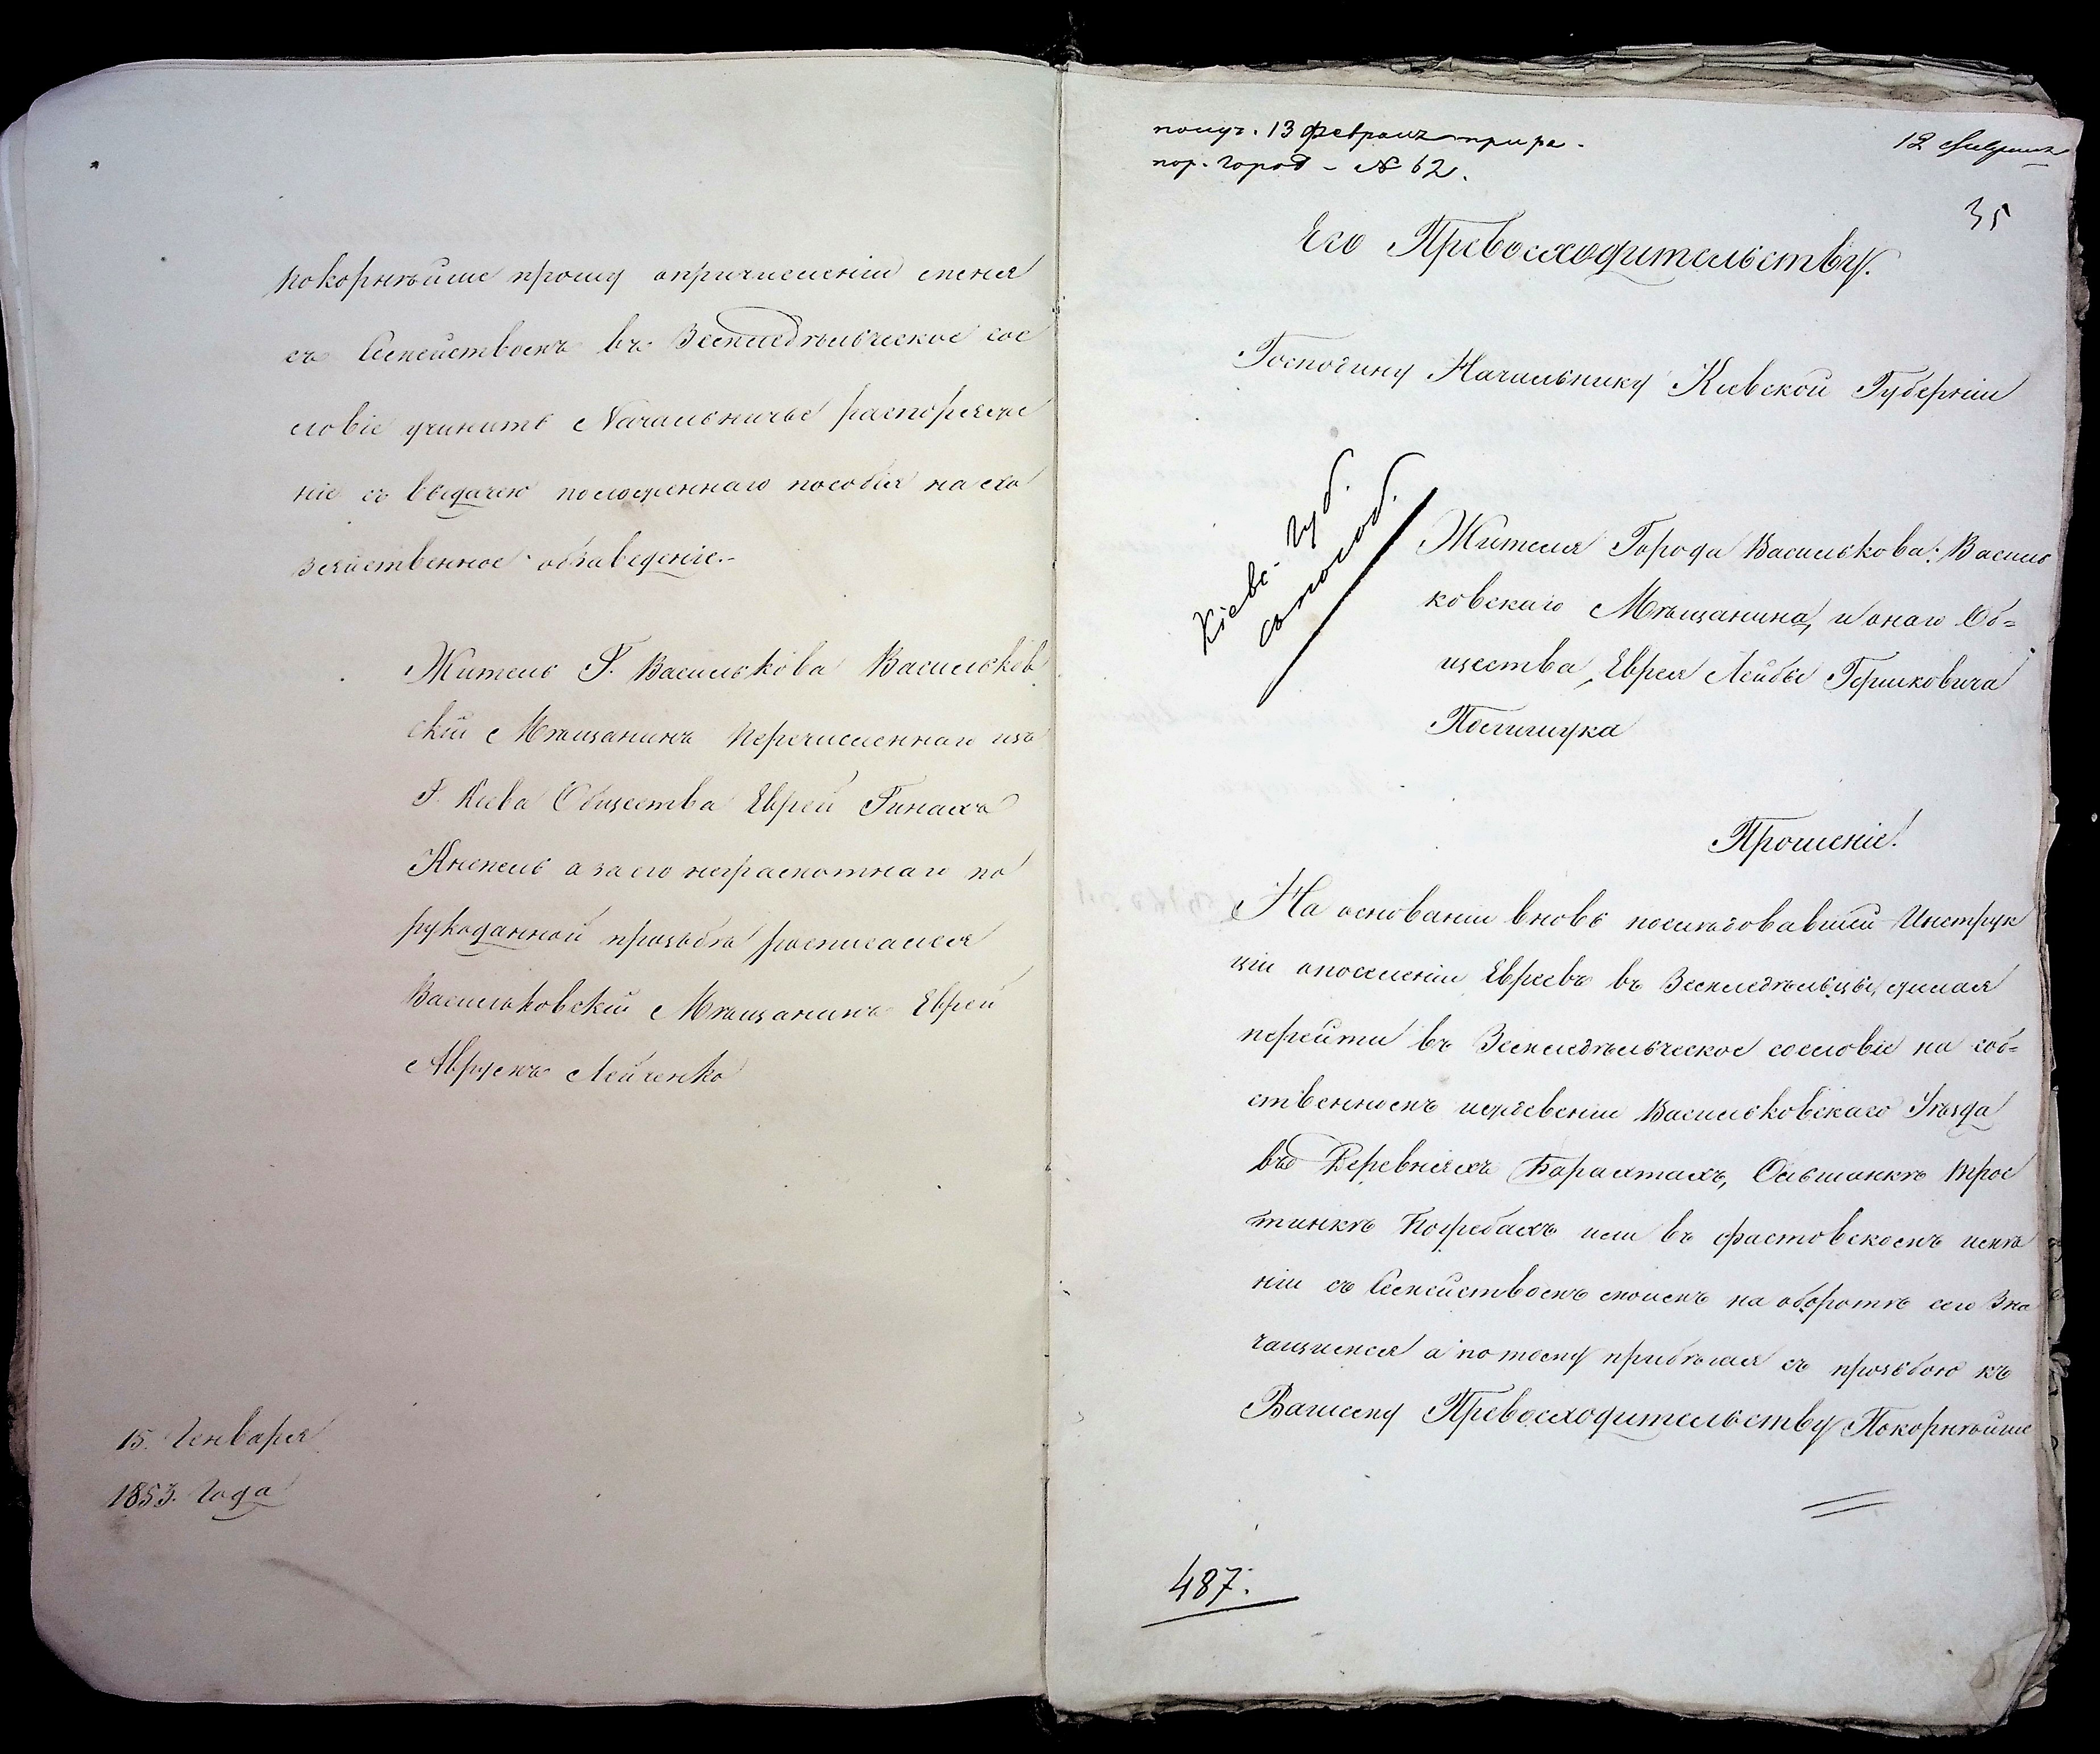 покорнѣйше прошу опричисленіи меня
съ Семействомъ въ Земледѣльческое сос
ловіе учинить Начальничье распоряже
ніе съ выдачею положеннаго пособія на хо
зяйственное обзаведеніе.-
Житель Г. Василькова Васильков
скій Мѣщанинъ перечисленнаго изъ
Г. Кіева Общества Еврей
а за его неграмотнаго по
рукоданной прозьбѣ росписался
Васильковскій Мѣщанинъ Еврей
Аврумъ Лейченко
15. Генваря
1853. Года
получ. 13 февраля
пор. город - № 62.
12 февраля
35
Его Превосходительству.
Господину Начальнику Кіевской Губерніи
Кіевс. Губ.
Жителя Города Василькова: Василь
ковскаго Мѣщанина, и онаго Об=
щества, Еврея Лейбы Гершковича
Прошеніе!
На основаніи вновь послѣдовавшей Инструк
ціи опоселеніи Евреевъ въ Земледѣльцы, желая
перейти въ Земледѣльческое сословіе на соб=
ственномъ иждевеніи Васильковскаго Уѣзда
въ Деревняхъ Барахтахъ, Ольшанкѣ Трос
тинкѣ Погребахъ или въ фастовскомъ имѣ
ніи съ Семействомъ моимъ на оборотѣ сего Зна
чащимся а потому прибѣгая съ прозьбою къ
Вашему Превосходительству Покорнѣйше
487.